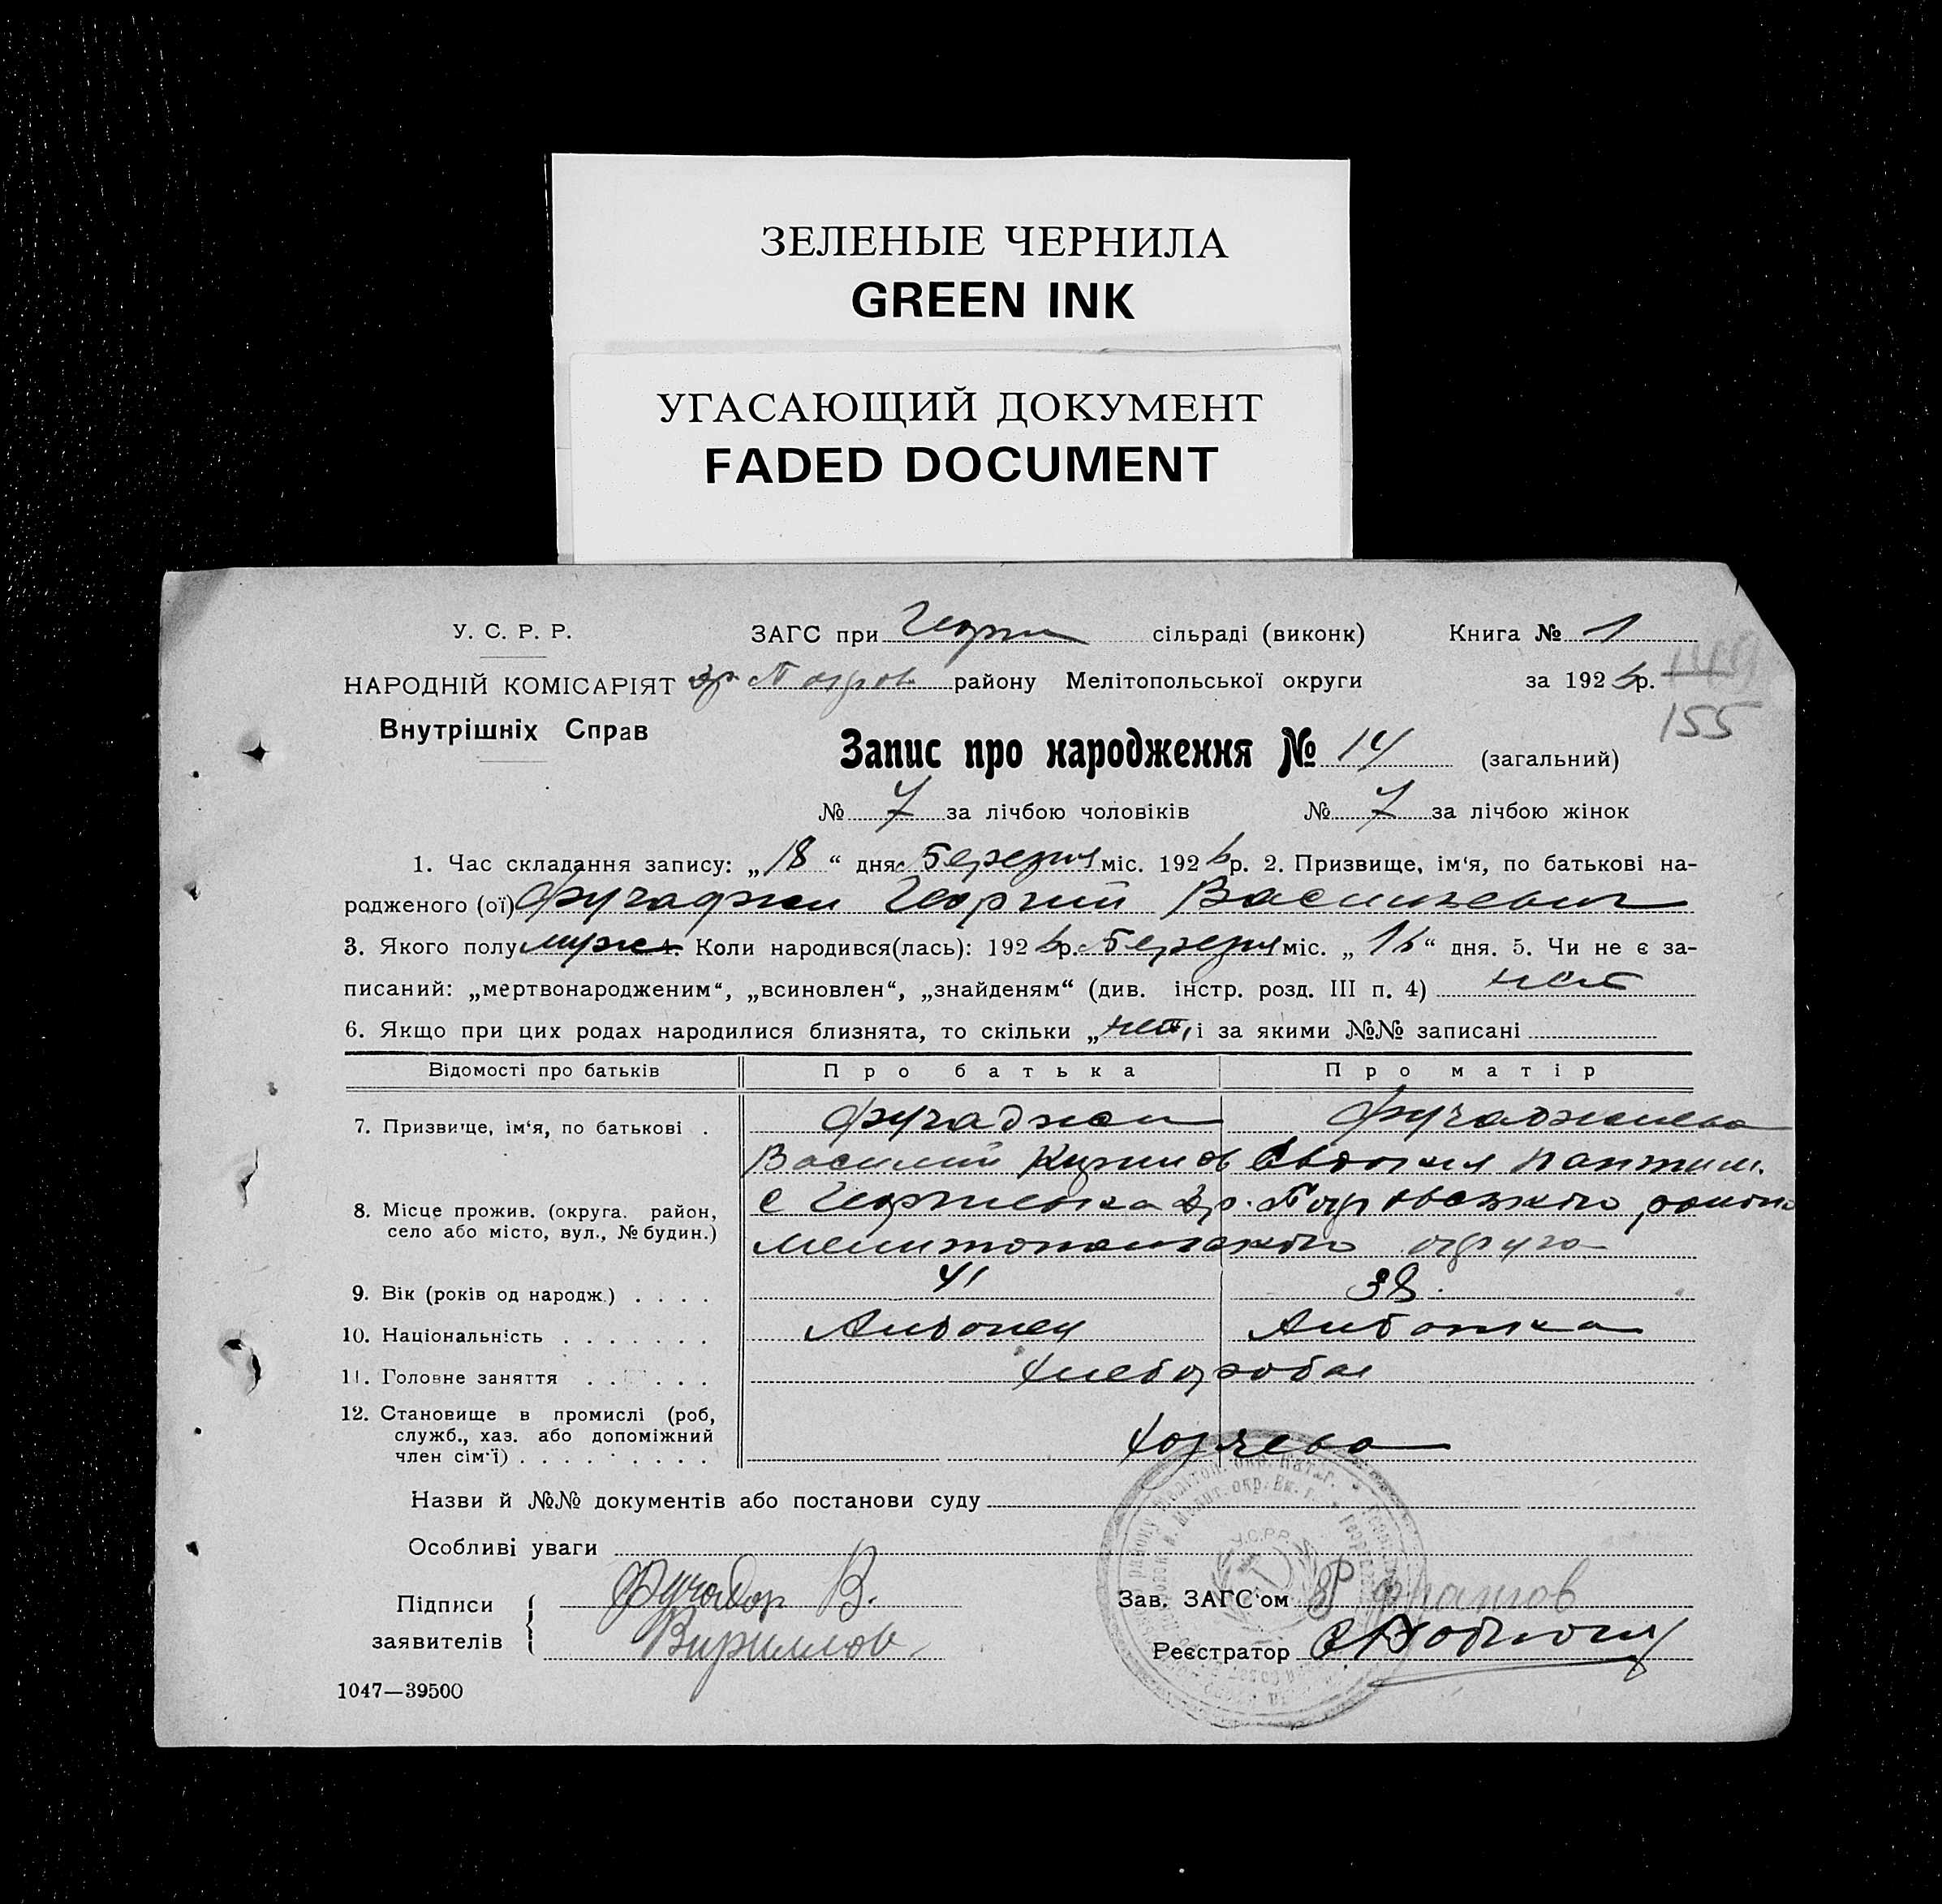 ЗЕЛЕНЫЕ ЧЕРНИЛА
GREEN INK
УГАСАЮЩИЙ ДОКУМЕНТ
FADED DOCUMENT
У. С. Р. Р.
ЗАГС при Георги сільраді (виконк) Книга № 1
НАРОДНІЙ КОМІСАРІЯТ району Мелітопольської округи за 1926 р.
155
Внутрішніх Справ
Запис про народження № 14 (загальний)
№ 7 за лічбою чоловіків № 7 за лічбою жінок
1. Час складання запису: „18“ дня березня міс. 1926 р. 2. Призвище, ім‘я, по батькові на-
родженого (ої) Фучаджи Георгий Васильевич
3. Якого полу муж 4. Коли народився(лась): 1926 р. березня міс. „16“ дня. 5. Чи не є за-
писаний: „мертвонародженим“, „всиновлен“, „знайденям“ (див. інстр. розд. III п. 4) нет
6. Якщо при цих родах народилися близнята, то скільки „нет“, і за якими №№ записані
Відомості про батьків Про батька Про матір
7. Призвище, ім‘я, по батькові . Фучаджи Фучаджиева
Василий Кирилов Евдокия Пантим.
8. Місце прожив. (округа. район,
село або місто, вул., № будин.)
с Георгиевка района
Мелитопольского округа
9. Вік (років од народж.) . . . . 41 38.
10. Національність . . . . . . . Албанец Албанка
11. Головне заняття . . . . . . хлебороба
12. Становище в промислі (роб,
служб., хаз. або допоміжний
член сім‘ї) . . . . . . . . .
Назви й №№ документів або постанови суду
Особливі уваги
У.С.Р.Р.
Підписи
заявителів
В.
Зав. ЗАГС‘ом
Реєстратор
1047—39500